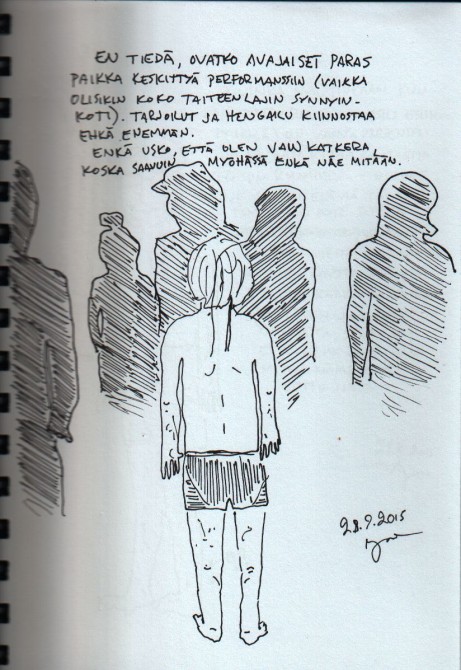 EN TIEDÄ, OVATKO AVAJAISET PARAS
PAIKKA KESKITTYÄ PERFORMANSSIIN (VAIKKA
OLISIKIN KOKO TAITEENLAJIN SYNNYIN-
KOTI). TARJOILUT JA HENGAILU KIINNOSTAA
EHKÄ ENEMMÄN.
ENKÄ USKO, ETTÄ OLEN VAIN KATKERA,
KOSKA SAAVUIN MYÖHÄSSÄ ENKÄ NÄE MITÄÄN.
28.9.2015